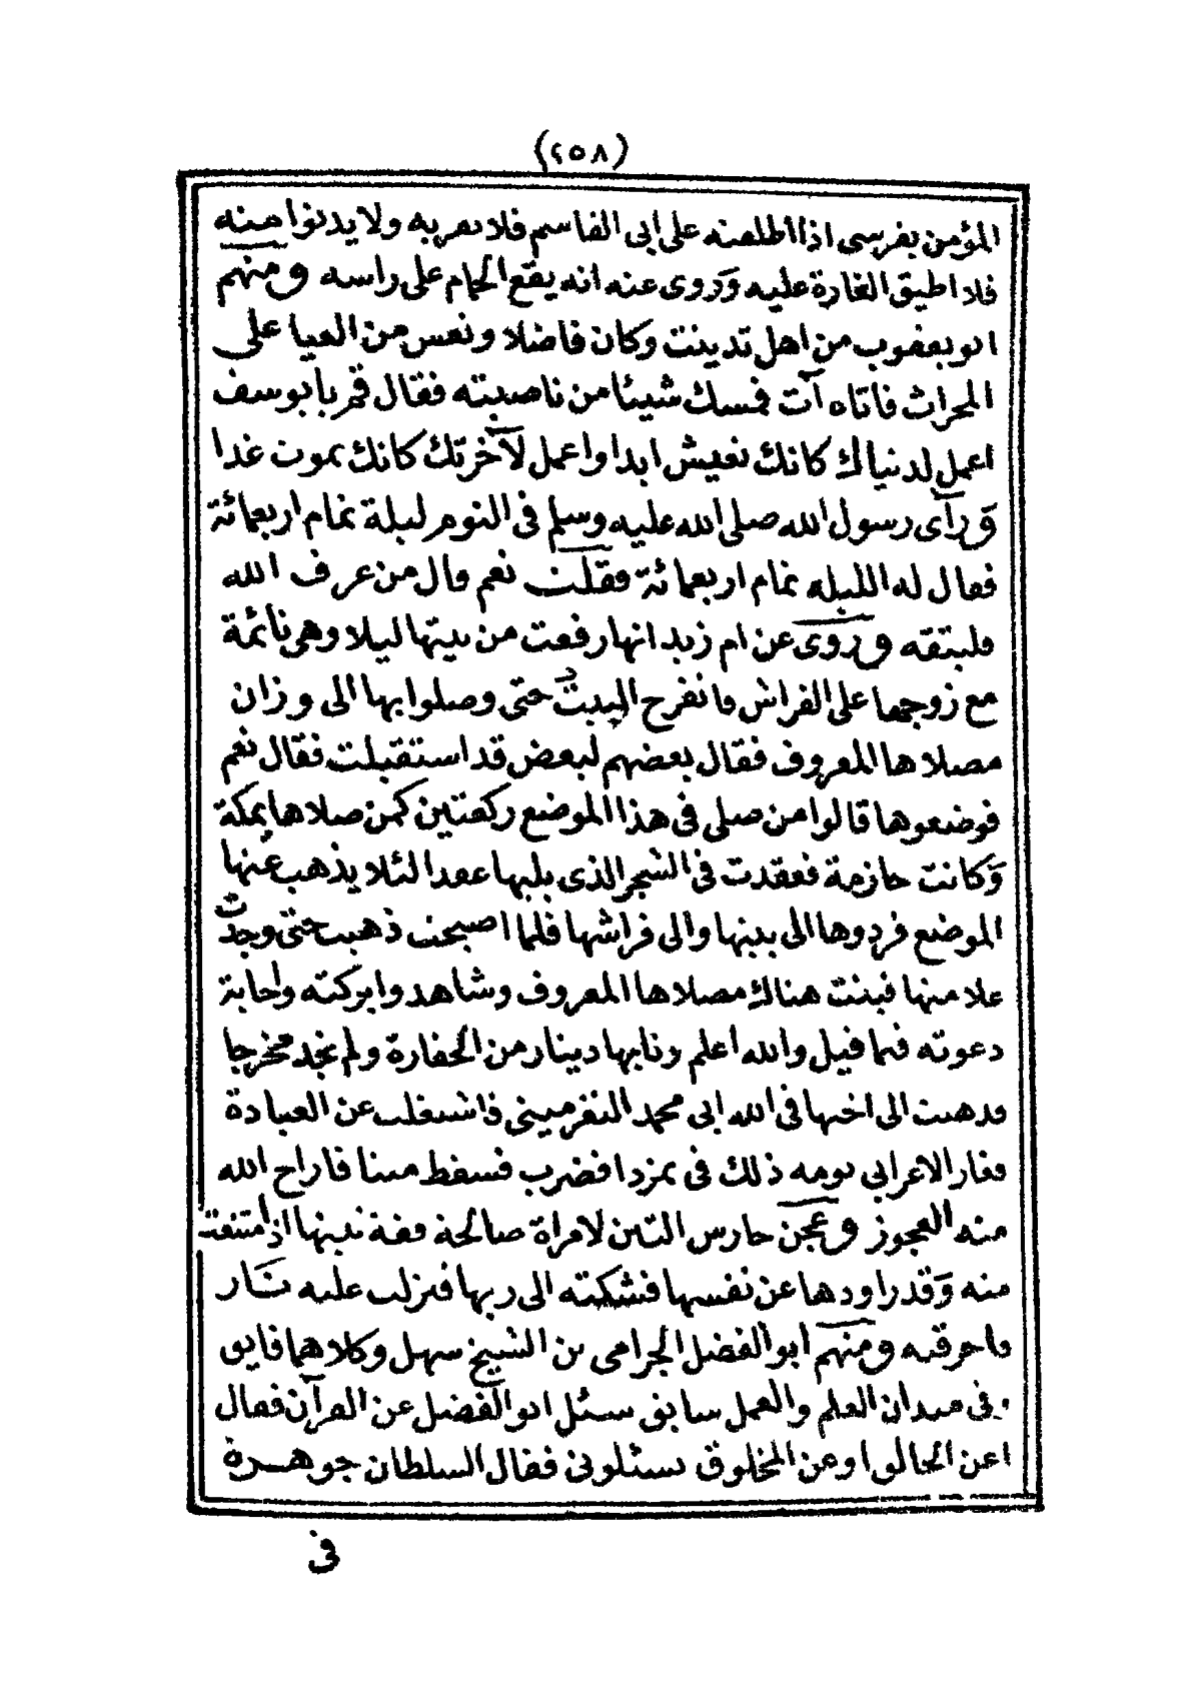 (٢٥٨)
المؤمن بفرسى اذا اطلعته على ابى القاسم فلا يعربه ولا يدنوا منه
فلا اطيق الغارة عليه وروى عنه انه يقع الحمام على راسه ومنهم
ابو يعقوب من اهل تدينت وكان فاضلا ونعس من العيا على
المحراث فاتاه آت فمسك شيئا من ناصيته فقال قم يا يوسف
اعمل لدنياك كانك تعيش ابدا واعمل لآخرتك كانك تموت غدا
ورآى رسول الله صلى الله عليه وسلم فى النوم ليلة تمام اربعمائة
فقال له الليله تمام اربعمائة فقلت نعم قال من عرف الله
فليتقه وروى عن ام زيد انها رفعت من بيتها ليلا وهى نائمة
مع زوجها على الفراش فانفرج البيت حتى وصلوا بها الى وزان
مصلاها المعروف فقال بعضهم لبعض قد استقبلت فقال نعم
فوضعوها قالوا من صلى فى هذا الموضع ركعتين كمن صلاها بمكة
وكانت حازمة فعقدت فى الشجر الذى يليها عقد الئلا يذهب عنها
الموضع فردوها الى بيتها والى فراشها فلما اصبحت ذهبت حتى وجدت
علامتها فبنت هناك مصلاها المعروف وشاهدوا بركته واجابة
دعوته فيما قيل والله اعلم ونابها دينار من الخفارة ولم تجد مخرجا
فذهبت الى اخيها فى الله ابى محمد النفرمينى فاشتغلت عن العبادة
فغار الاعرابي يومه ذلك فى بمزدا فضرب فسقط ميتا فاراح الله
منه العجوز وعجن حارس التين لامراة صالحة فقة تدينها اذ امتنعت
منه وقد راودها عن نفسها فشكته الى ربها فنزلت عليه نار
فاحرقته ومنهم ابو الفضل الجرامى بن الشيخ سهل وكلاهما فايق
وفى ميدان العلم والعمل سابق سئل ابو الفضل عن القرآن فقال
اعن الخالق او عن المخلوق تسئلونى فقال السلطان جوهرة
فى